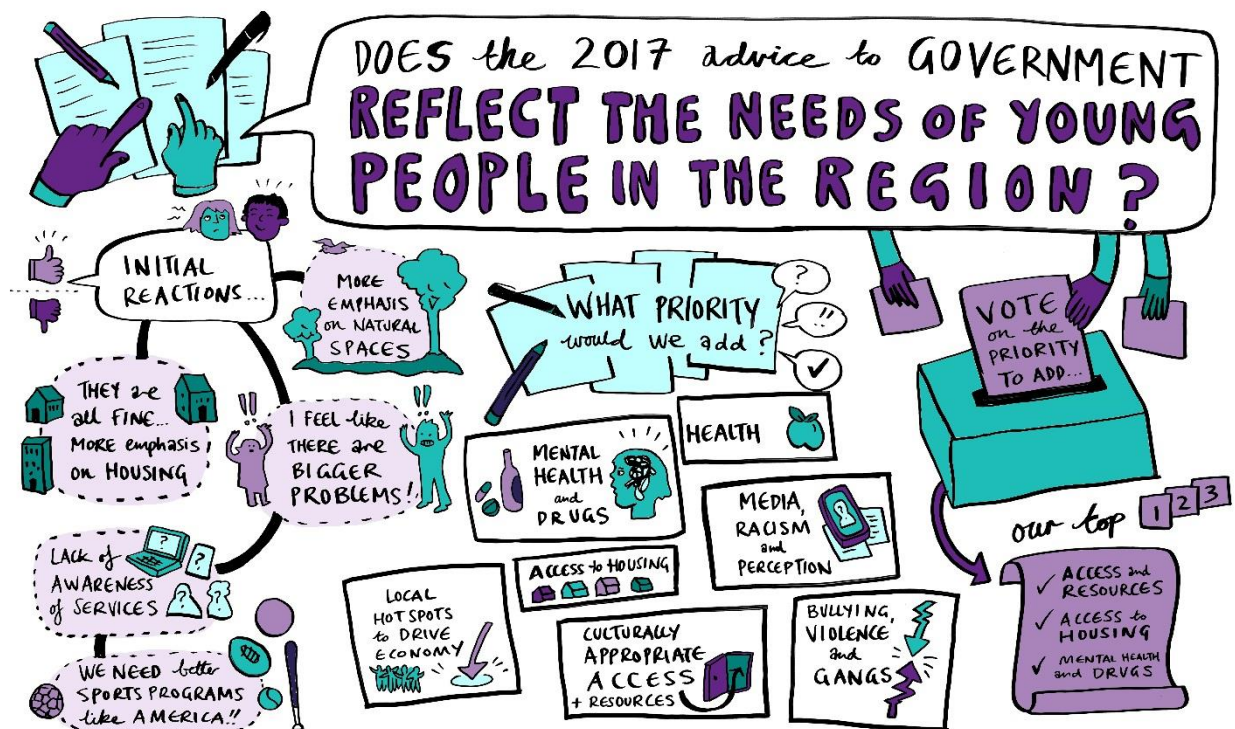 DOES the 2017 advice to GOVERNMENT
REFLECT THE NEEDS OF YOUNG
PEOPLE IN THE REGION?
INITIAL
REACTIONS...
MORE
EMPHASIS
on NATURAL
SPACES
THEY are
all FINE...
MORE emphasis
on HOUSING
I FEEL like
THERE are
BIGGER
PROBLEMS!
!!
!!
LACK of
AWARENESS
of SERVICES
?
?
?
?
WE NEED better
SPORTS PROGRAMS
like AMERICA!!
WHAT PRIORITY
would we add?
?
!!
✓
MENTAL
HEALTH
and
DRUGS
HEALTH
MEDIA,
RACISM
and
PERCEPTION
ACCESS to HOUSING
LOCAL
HOTSPOTS
to DRIVE
ECONOMY
CULTURALLY
APPROPRIATE
ACCESS
+ RESOURCES
BULLYING,
VIOLENCE
and
GANGS
VOTE
on the
PRIORITY
TO ADD...
our top 1 2 3
✓ ACCESS and
RESOURCES
✓ ACCESS to
HOUSING
✓ MENTAL HEALTH
and DRUGS